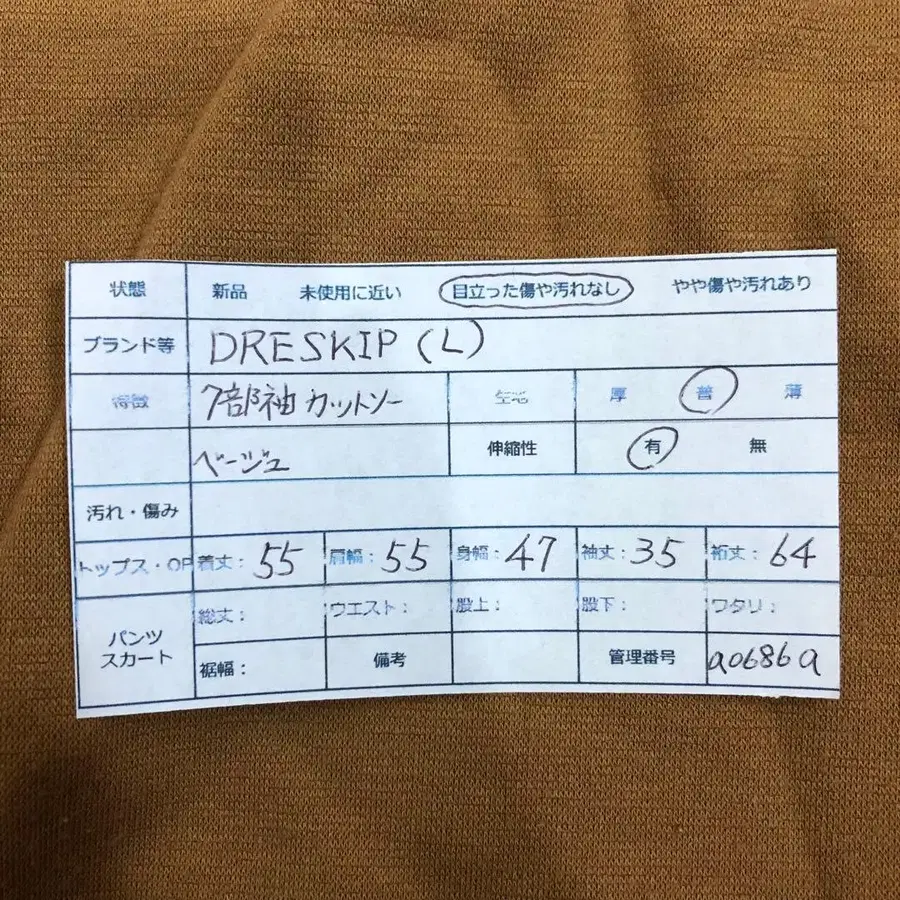 状態 新品 未使用に近い 目立った傷や汚れなし やや傷や汚れあり
ブランド等 DRESKIP (L)
特徴 7部袖 カットソー 生地 厚 普 薄
ベージュ 伸縮性 有 無
汚れ・傷み
トップス・OP 着丈: 55 肩幅: 55 身幅: 47 袖丈: 35 裄丈: 64
パンツ スカート 総丈: ウエスト: 股上: 股下: ワタリ:
裾幅: 備考 管理番号 a0686a